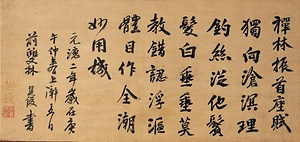 禪林振首座賦
獨向滄溟理
釣絲從他鬢
髮白垂垂莫
教錯認浮漚
體目作全潮
妙用機
元
二年歲在庚
午仲
上澣五日
前
林
書